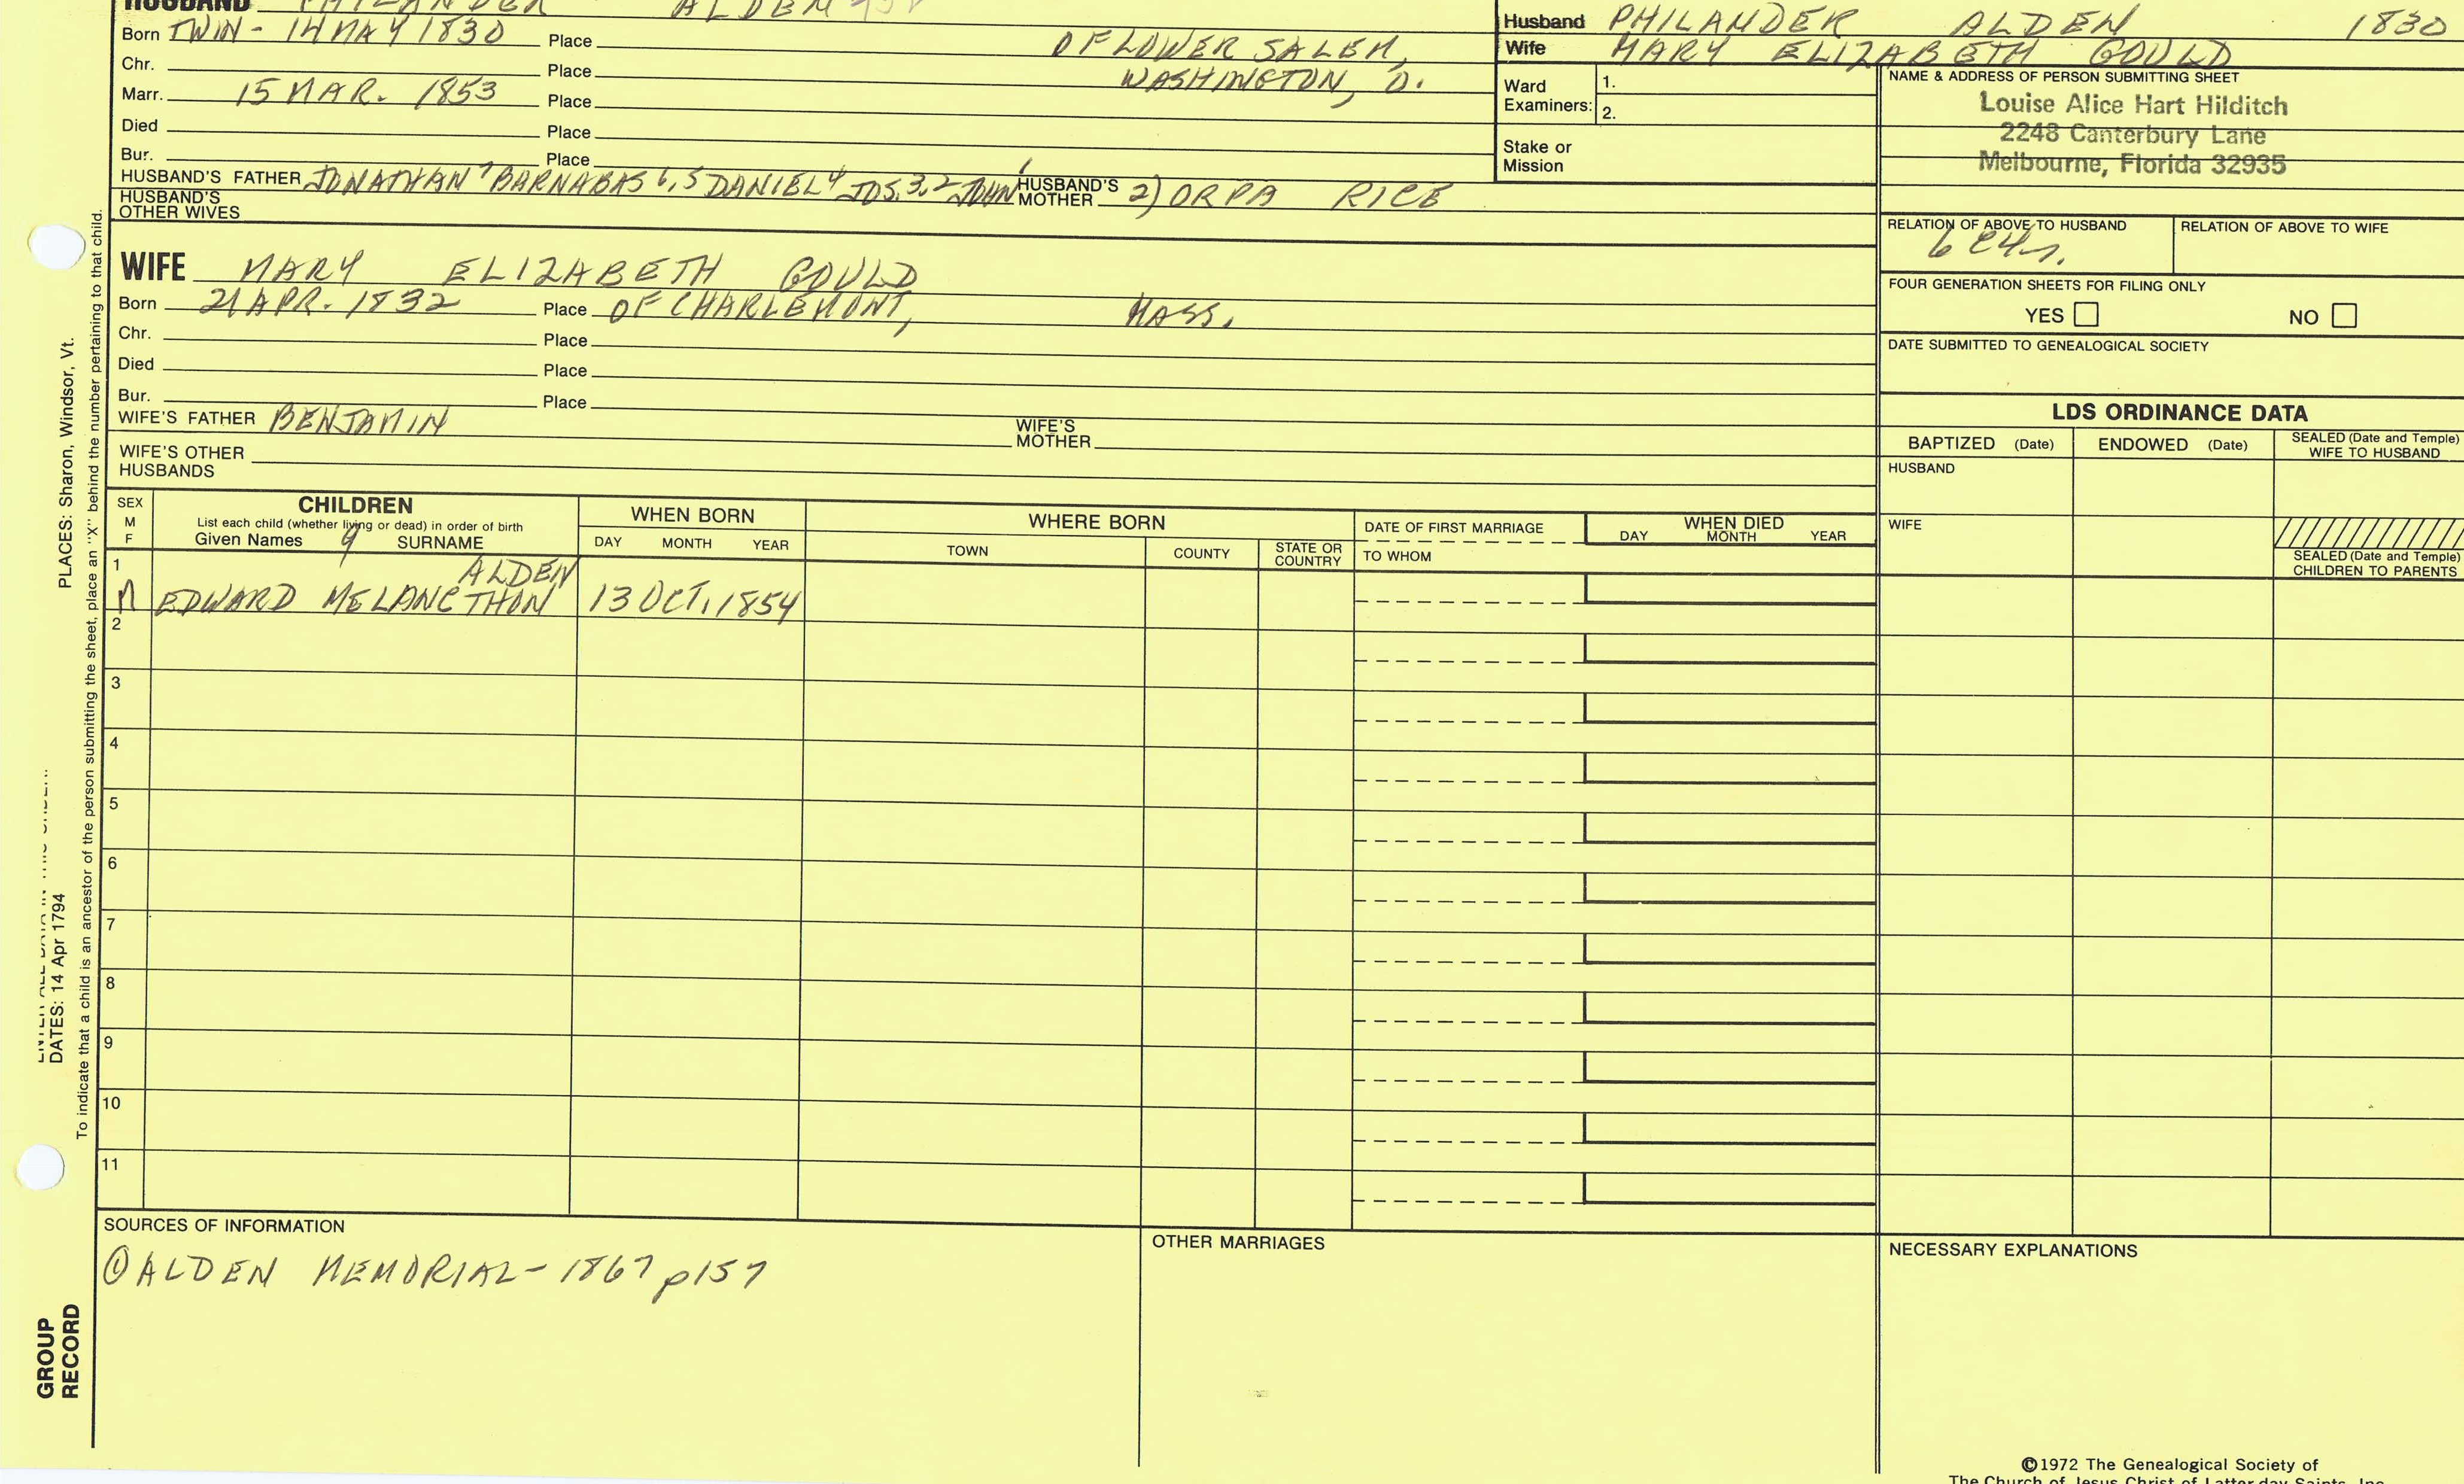 HUSBAND PHILANDER ALDEN
Born TWIN - 14 MAY 1830 Place OF LOWER SALEM,
Chr. Place WASHINGTON, O.
Marr. 15 MAR. 1853 Place
Died Place
Bur. Place
HUSBAND'S FATHER JONATHAN 7 BARNABAS 6,5 DANIEL 4 JOS. 3,2 JOHN 1 HUSBAND'S MOTHER 2) ORPA RICE
HUSBAND'S OTHER WIVES
Husband PHILANDER ALDEN 1830
Wife MARY ELIZABETH GOULD
Ward Examiners: 1.
2.
Stake or Mission
NAME & ADDRESS OF PERSON SUBMITTING SHEET
Louise Alice Hart Hilditch
2248 Canterbury Lane
Melbourne, Florida 32935
RELATION OF ABOVE TO HUSBAND RELATION OF ABOVE TO WIFE
FOUR GENERATION SHEETS FOR FILING ONLY
YES NO
DATE SUBMITTED TO GENEALOGICAL SOCIETY
WIFE MARY ELIZABETH GOULD
Born 21 APR. 1832 Place OF CHARLEMONT, MASS.
Chr. Place
Died Place
Bur. Place
WIFE'S FATHER BENJAMIN WIFE'S MOTHER
WIFE'S OTHER HUSBANDS
LDS ORDINANCE DATA
BAPTIZED (Date) ENDOWED (Date) SEALED (Date and Temple) WIFE TO HUSBAND
HUSBAND
WIFE
SEALED (Date and Temple) CHILDREN TO PARENTS
SEX M F
CHILDREN
List each child (whether living or dead) in order of birth
Given Names 9 SURNAME
WHEN BORN
DAY MONTH YEAR
WHERE BORN
TOWN COUNTY STATE OR COUNTRY
DATE OF FIRST MARRIAGE
TO WHOM
WHEN DIED
DAY MONTH YEAR
1 ALDEN
M EDWARD MELANCTHON 13 OCT. 1854
2
3
4
5
6
7
8
9
10
11
SOURCES OF INFORMATION
① ALDEN MEMORIAL - 1867 p157
OTHER MARRIAGES
NECESSARY EXPLANATIONS
©1972 The Genealogical Society of
The Church of Jesus Christ of Latter-day Saints, Inc.
PLACES: Sharon, Windsor, Vt.
DATES: 14 Apr 1794
To indicate that a child is an ancestor of the person submitting the sheet, place an "X" behind the number pertaining to that child.
GROUP
RECORD